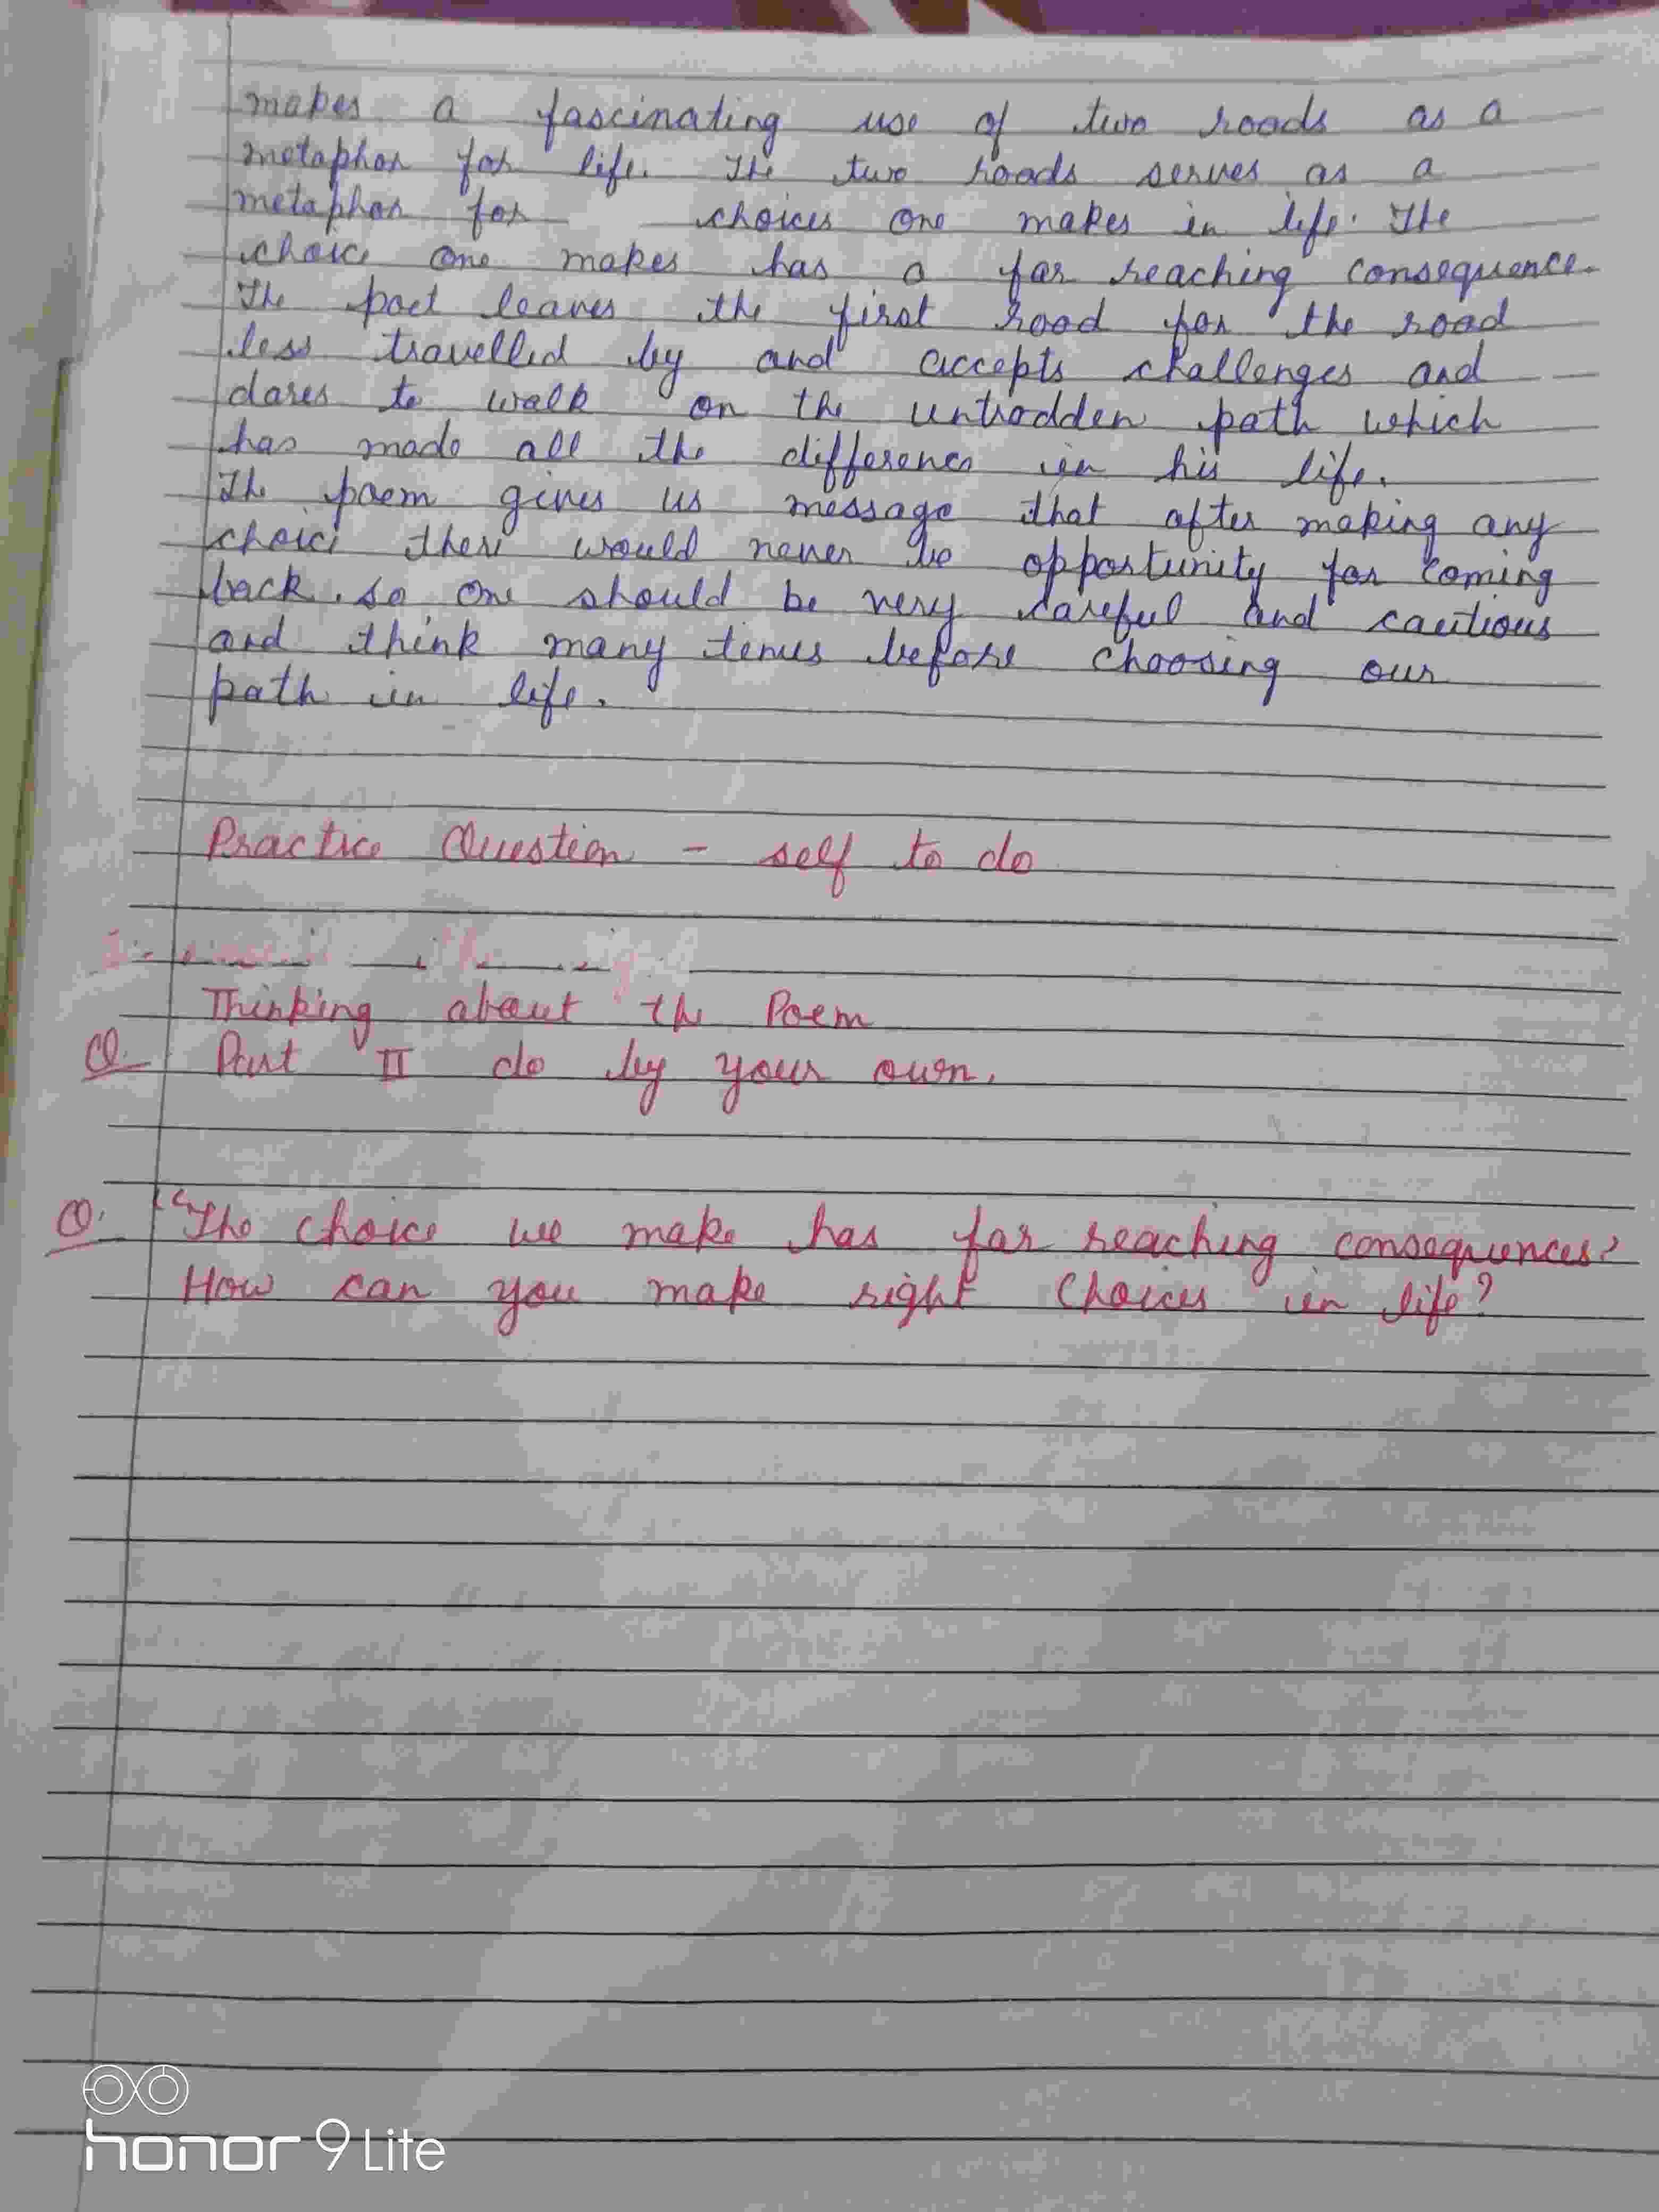 makes a fascinating use of two roads as a
metaphor for life. The two roads serves as a
metaphor for choices one makes in life. The
choice one makes has a far reaching consequence.
The poet leaves the first road for the road
less travelled by and accepts challenges and
dares to walk on the untrodden path which
has made all the difference in his life.
The poem gives us message that after making any
choice there would never be opportunity for coming
back. So one should be very careful and cautious
and think many times before choosing our
path in life.
Practice Question - self to do
Thinking about the Poem
Q. Part II do by your own.
Q. "The choice we make has far reaching consequences?
How can you make right choices in life?
honor 9 Lite